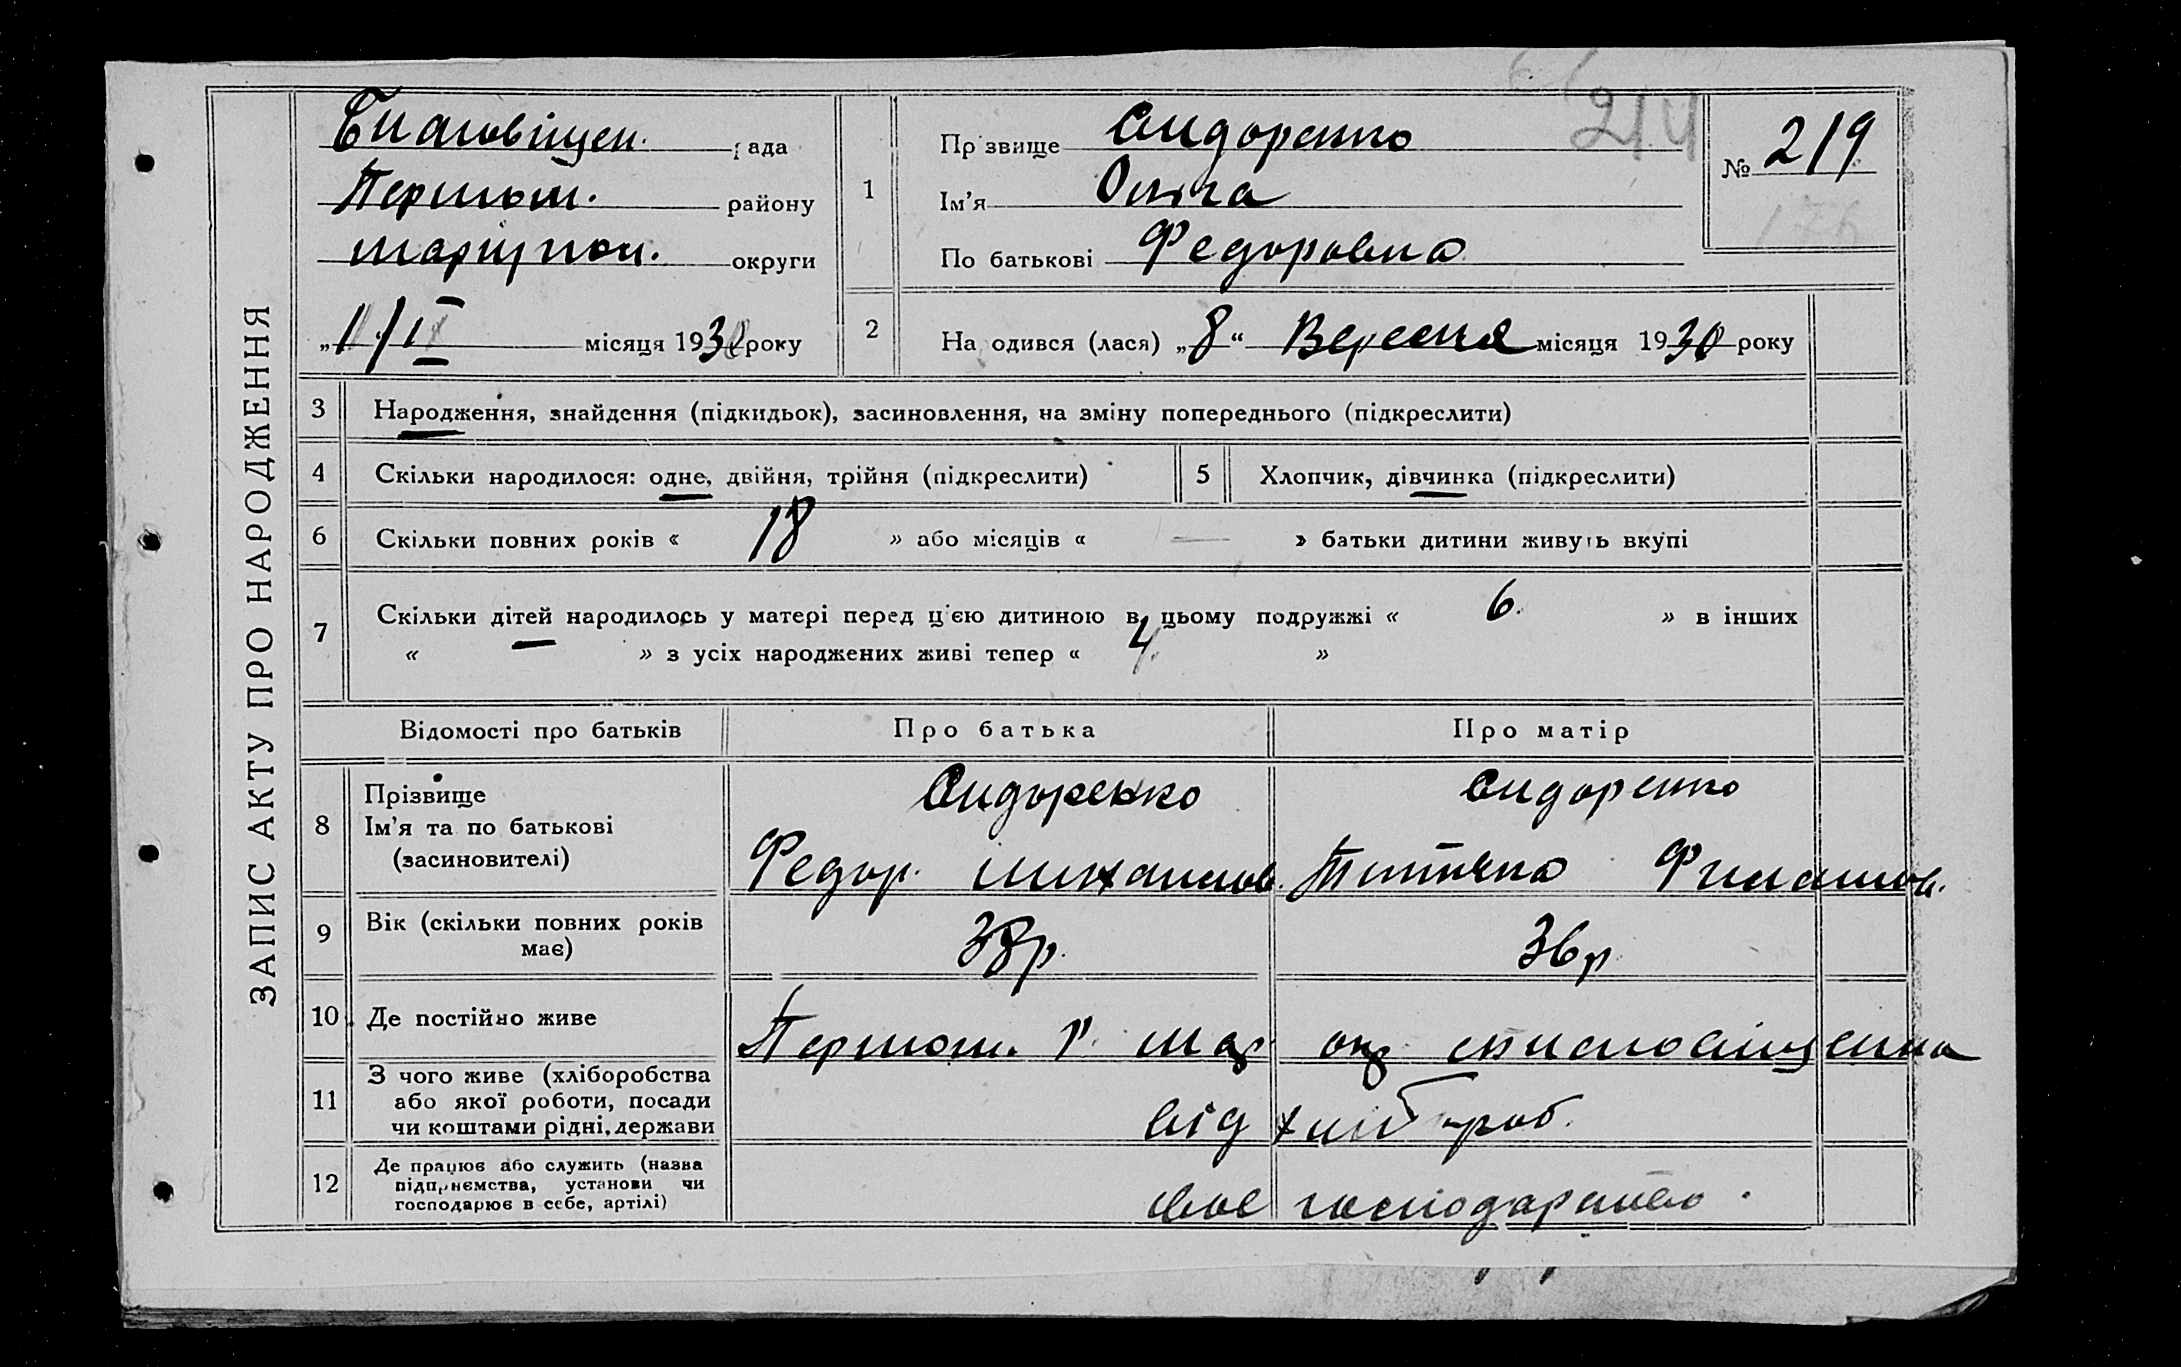 ЗАПИС АКТУ ПРО НАРОДЖЕННЯ
Благовіщен. рада
Першом. району
маріупол. округи
„11/IX місяця 1930 року
1
Прізвище Сидоренко
Ім'я Ольга
По батькові Федоровна
214
№ 219
176
2 На одився (лася) „8“ Вересня місяця 1930 року
3 Народження, знайдення (підкидьок), засиновлення, на зміну попереднього (підкреслити)
4 Скільки народилося: одне, двійня, трійня (підкреслити) 5 Хлопчик, дівчинка (підкреслити)
6 Скільки повних років « 18 » або місяців « — » батьки дитини живуть вкупі
7 Скільки дітей народилось у матері перед ц'єю дитиною в цьому подружжі « 6. » в інших
« — » з усіх народжених живі тепер « 4. »
Відомості про батьків Про батька Про матір
8 Прізвище Сидоренко Сидоренко
Ім'я та по батькові
(засиновителі) Федор. Михайлов. Титяна Филашов.
9 Вік (скільки повних років має) 38р. 36р
10 Де постійно живе Першом. р. Мар окр.
11 З чого живе (хліборобства
або якої роботи, посади
чи коштами рідні, держави від хлібороб.
12 Де працює або служить (назва
підприємства, установи чи
господарює в себе, артілі) своє господарство.